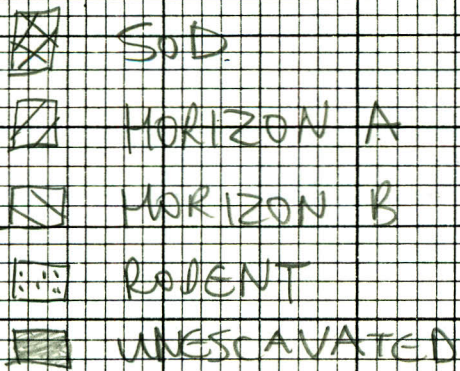 SOD
HORIZON A
HORIZON B
RODENT
UNESCAVATED